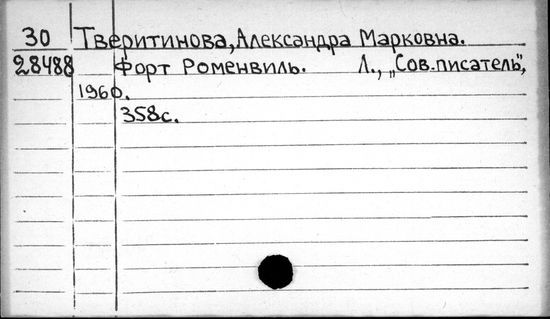 30 Тверитинова, Александра Марковна.
28488 Форт Роменвиль. Л., „Сов. писатель",
1960.
358с.